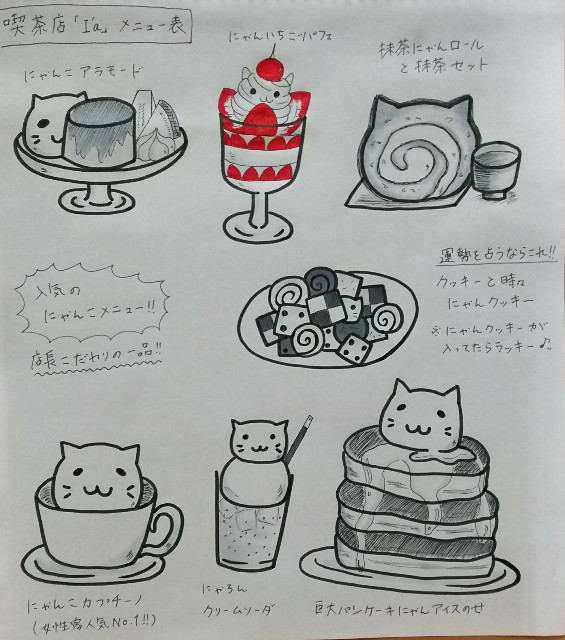 喫茶店「I'a」メニュー表
にゃんこアラモード
にゃんいちごパフェ
抹茶にゃんロール
と抹茶セット
人気の
にゃんこメニュー!!
店長こだわりの一品!!
運勢を占うならこれ!!
クッキーと時々
にゃんクッキー
※にゃんクッキーが
入ってたらラッキー♪
にゃんこカプチーノ
(女性客人気No.1!!)
にゃろん
クリームソーダ
巨大パンケーキにゃんアイスのせ